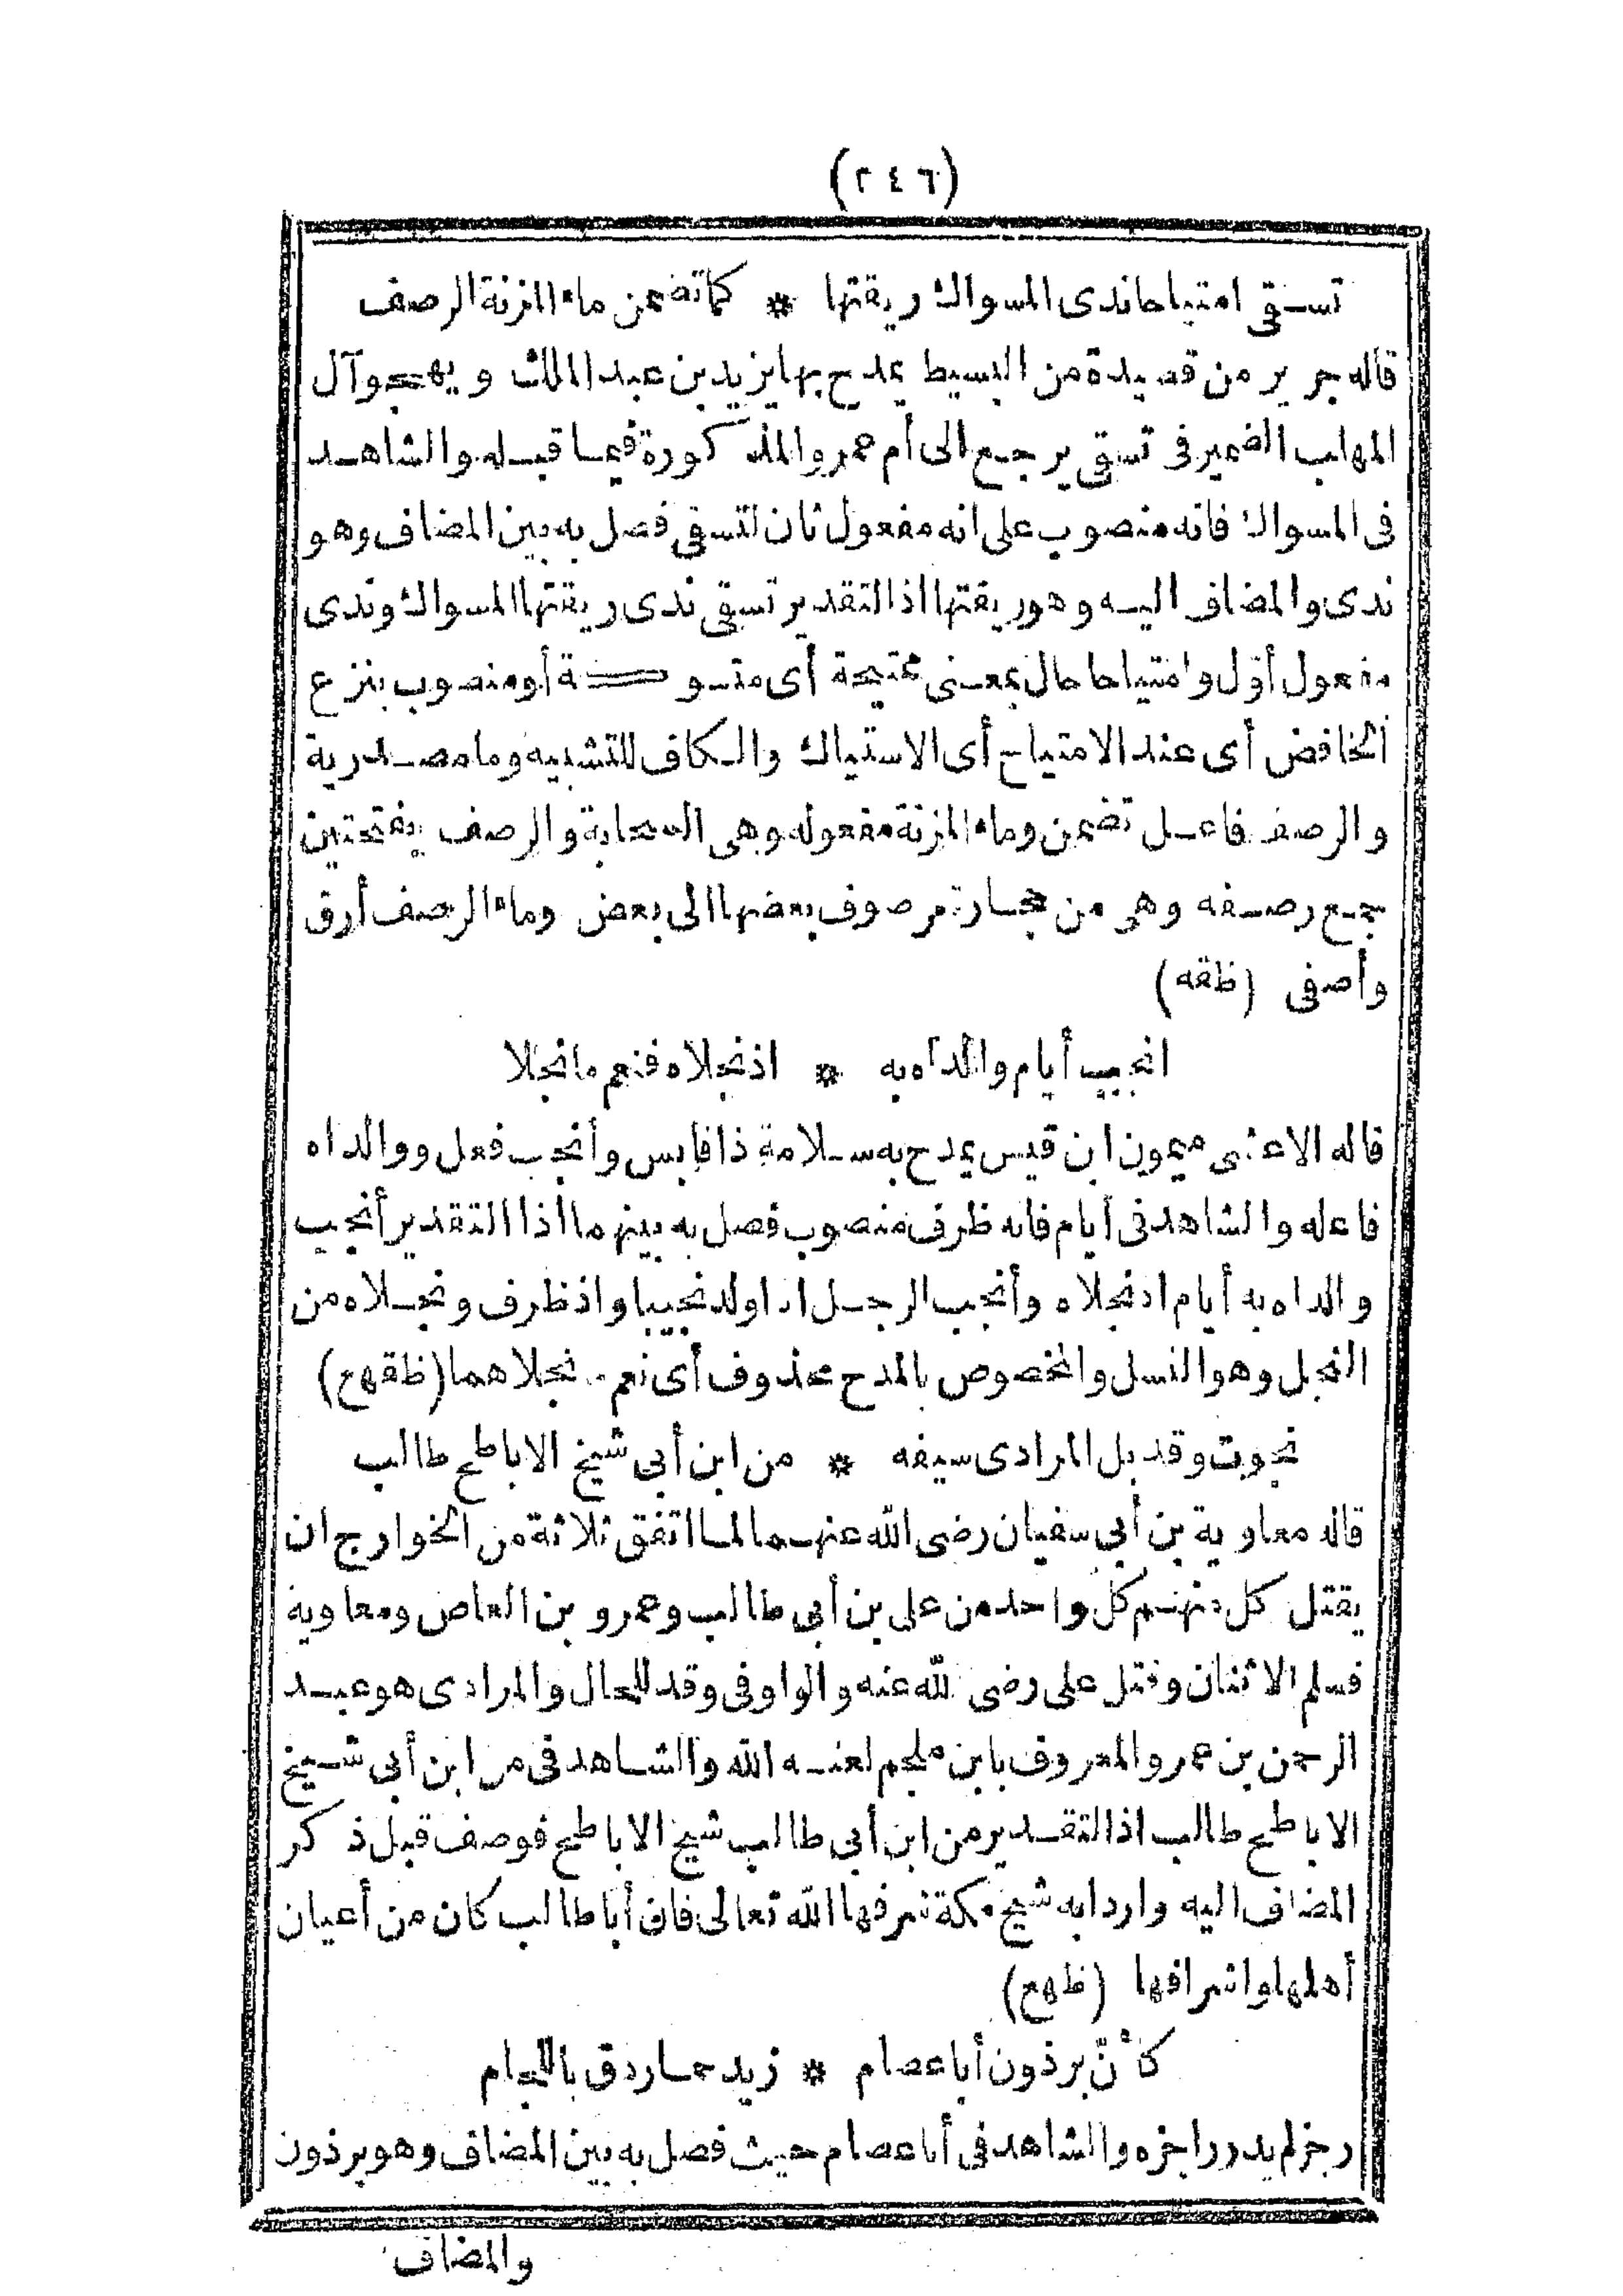 (٢٤٦)
تسقى امتياحا ندى المسواك ريقتها * كما تضمن ماء المزنة الرصف
قاله جرير من قصيدة من البسيط يمدح بها يزيد بن عبد الملك و يهجو آل
المهلب الضمير فى تسقى يرجع الى أم عمرو المذكورة فيما قبله والشاهد
فى المسواك فانه منصوب على انه مفعول ثان لتسقى فصل به بين المضاف وهو
ندى والمضاف اليه وهو ريقتها اذ التقدير تسقى ندى ريقتها المسواك وندى
مفعول أوّل وامتياحا حال بمعنى ممتيحة أى متسوكة أو منصوب بنزع
الخافض أى عند الامتياح أى الاستياك والكاف للتشبيه وما مصدرية
والرصف فاعل تضمن وماء المزنة مفعوله وهى السحابة والرصف بفتحتين
جمع رصفه وهى من حجارة مرصوف بعضها الى بعض وماء الرصف أرق
وأصفى (ظقه)
انجب أيام والداه به * اذ نجلاه فنعم ما نجلا
قاله الاعشى ميمون ابن قيس يمدح به سلامة ذا فايس وأنجب فعل ووالداه
فاعله والشاهد فى أيام فانه ظرف منصوب فصل به بينهما اذا التقدير أنجب
والداه به أيام اذ نجلاه وأنجب الرجل اذا ولد نجيبا واذ ظرف ونجلاه من
النجل وهو النسل والمخصوص بالمدح محذوف أى نعم نجلا هما (ظقهع)
نجوت وقد بل المرادى سيفه * من ابن أبى شيخ الاباطح طالب
قاله معاوية بن أبى سفيان رضى الله عنهما لما اتفق ثلاثة من الخوارج ان
يقتل كل منهم كل واحد من على بن أبى طالب وعمرو بن العاص ومعاوية
فسلم الاثنان وقتل على رضى الله عنه والواو فى وقد للحال والمرادى هو عبد
الرحمن بن عمرو المعروف بابن ملجم لعنه الله والشاهد فى من ابن أبى شيخ
الاباطح طالب اذ التقدير من ابن أبى طالب شيخ الاباطح فوصف قبل ذكر
المضاف اليه واراد به شيخ مكة شرفها الله تعالى فان أبا طالب كان من أعيان
أهلها واشرافها (ظهع)
كأنّ برذون أبا عصام * زيد حمار دق باللجام
رجز لم يدر راجزه والشاهد فى أبا عصام حيث فصل به بين المضاف وهو برذون
والمضاف